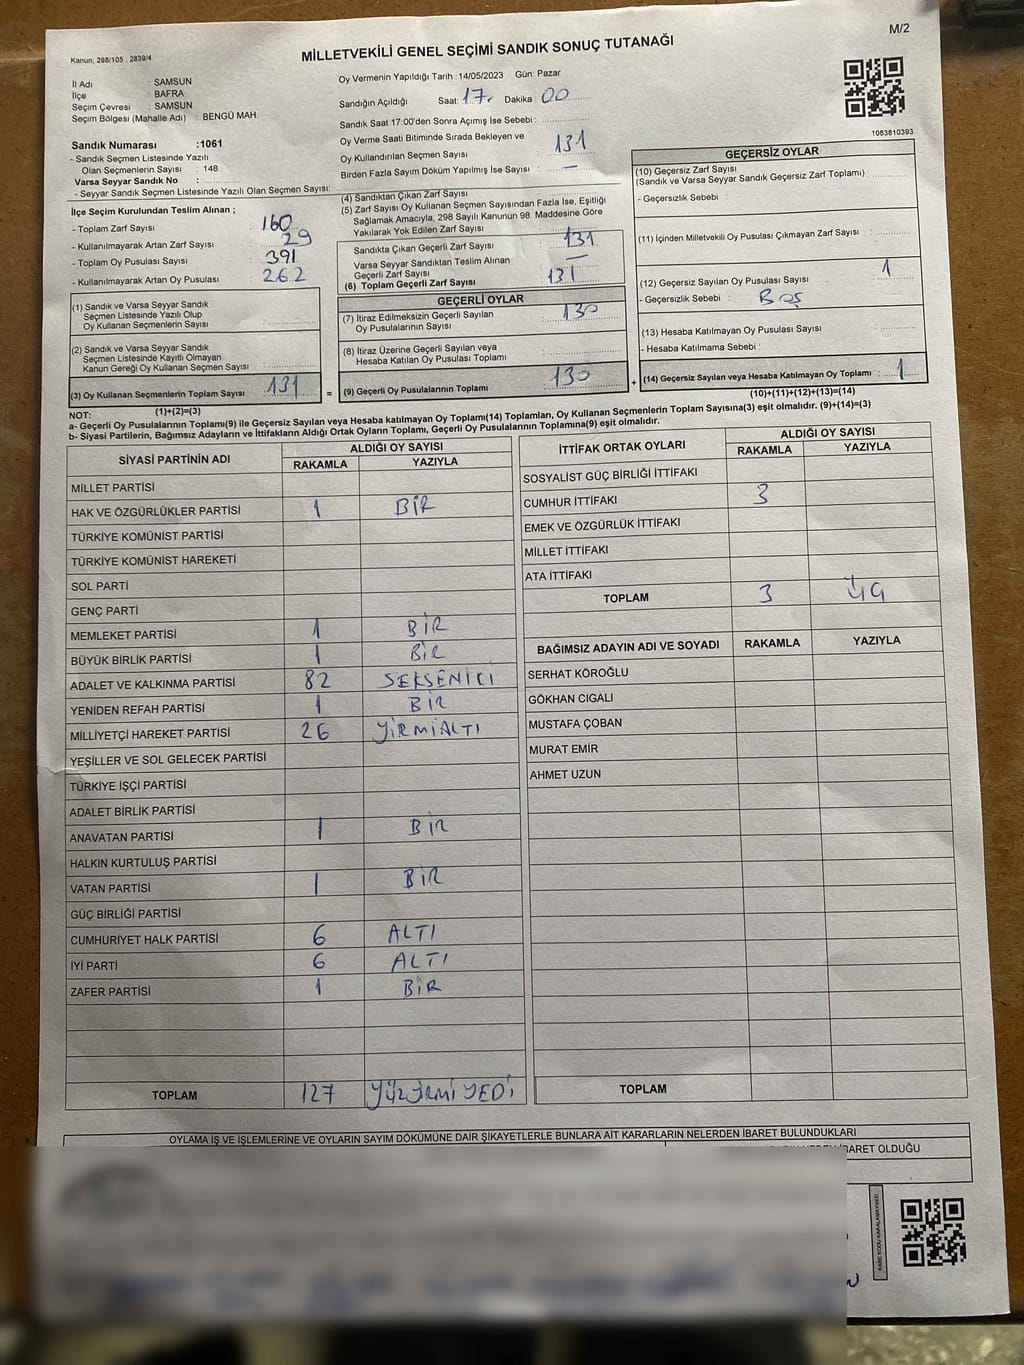 M/2
Kanun; 298/105 , 2839/4
MİLLETVEKİLİ GENEL SEÇİMİ SANDIK SONUÇ TUTANAĞI
İl Adı : SAMSUN
İlçe : BAFRA
Seçim Çevresi : SAMSUN
Seçim Bölgesi (Mahalle Adı) : BENGÜ MAH
Sandık Numarası :1061
- Sandık Seçmen Listesinde Yazılı
Olan Seçmenlerin Sayısı : 148
Varsa Seyyar Sandık No :
- Seyyar Sandık Seçmen Listesinde Yazılı Olan Seçmen Sayısı:
Oy Vermenin Yapıldığı Tarih : 14/05/2023 Gün: Pazar
Sandığın Açıldığı Saat: 17 Dakika : 00
Sandık Saat 17:00'den Sonra Açımış İse Sebebi :
Oy Verme Saati Bitiminde Sırada Bekleyen ve
Oy Kullandırılan Seçmen Sayısı : 131
Birden Fazla Sayım Döküm Yapılmış İse Sayısı : —
1083810393
İlçe Seçim Kurulundan Teslim Alınan ;
- Toplam Zarf Sayısı : 160
- Kullanılmayarak Artan Zarf Sayısı : 29
- Toplam Oy Pusulası Sayısı : 391
- Kullanılmayarak Artan Oy Pusulası : 262
(1) Sandık ve Varsa Seyyar Sandık
Seçmen Listesinde Yazılı Olup
Oy Kullanan Seçmenlerin Sayısı :
(2) Sandık ve Varsa Seyyar Sandık
Seçmen Listesinde Kayıtlı Olmayan
Kanun Gereği Oy Kullanan Seçmen Sayısı :
(3) Oy Kullanan Seçmenlerin Toplam Sayısı : 131
(1)+(2)=(3)
(4) Sandıktan Çıkan Zarf Sayısı :
(5) Zarf Sayısı Oy Kullanan Seçmen Sayısından Fazla İse, Eşitliği
Sağlamak Amacıyla, 298 Sayılı Kanunun 98. Maddesine Göre
Yakılarak Yok Edilen Zarf Sayısı :
Sandıkta Çıkan Geçerli Zarf Sayısı : 131
Varsa Seyyar Sandıktan Teslim Alınan
Geçerli Zarf Sayısı : —
(6) Toplam Geçerli Zarf Sayısı : 131
GEÇERLİ OYLAR
(7) İtiraz Edilmeksizin Geçerli Sayılan
Oy Pusulalarının Sayısı : 130
(8) İtiraz Üzerine Geçerli Sayılan veya
Hesaba Katılan Oy Pusulası Toplamı :
= (9) Geçerli Oy Pusulalarının Toplamı : 130 +
GEÇERSİZ OYLAR
(10) Geçersiz Zarf Sayısı
(Sandık ve Varsa Seyyar Sandık Geçersiz Zarf Toplamı) :
- Geçersizlik Sebebi :
(11) İçinden Milletvekili Oy Pusulası Çıkmayan Zarf Sayısı :
(12) Geçersiz Sayılan Oy Pusulası Sayısı : 1
- Geçersizlik Sebebi : Boş
(13) Hesaba Katılmayan Oy Pusulası Sayısı :
- Hesaba Katılmama Sebebi :
(14) Geçersiz Sayılan veya Hesaba Katılmayan Oy Toplamı : 1
(10)+(11)+(12)+(13)=(14)
NOT:
a- Geçerli Oy Pusulalarının Toplamı(9) ile Geçersiz Sayılan veya Hesaba katılmayan Oy Toplamı(14) Toplamları, Oy Kullanan Seçmenlerin Toplam Sayısına(3) eşit olmalıdır. (9)+(14)=(3)
b- Siyasi Partilerin, Bağımsız Adayların ve İttifakların Aldığı Ortak Oyların Toplamı, Geçerli Oy Pusulalarının Toplamına(9) eşit olmalıdır.
SİYASİ PARTİNİN ADI ALDIĞI OY SAYISI
RAKAMLA YAZIYLA
MİLLET PARTİSİ
HAK VE ÖZGÜRLÜKLER PARTİSİ 1 BİR
TÜRKİYE KOMÜNİST PARTİSİ
TÜRKİYE KOMÜNİST HAREKETİ
SOL PARTİ
GENÇ PARTİ
MEMLEKET PARTİSİ 1 BİR
BÜYÜK BİRLİK PARTİSİ 1 BİR
ADALET VE KALKINMA PARTİSİ 82 SEKSENİKİ
YENİDEN REFAH PARTİSİ 1 BİR
MİLLİYETÇİ HAREKET PARTİSİ 26 YİRMİALTI
YEŞİLLER VE SOL GELECEK PARTİSİ
TÜRKİYE İŞÇİ PARTİSİ
ADALET BİRLİK PARTİSİ
ANAVATAN PARTİSİ 1 BİR
HALKIN KURTULUŞ PARTİSİ
VATAN PARTİSİ 1 BİR
GÜÇ BİRLİĞİ PARTİSİ
CUMHURİYET HALK PARTİSİ 6 ALTI
İYİ PARTİ 6 ALTI
ZAFER PARTİSİ 1 BİR
TOPLAM 127 YÜZYİRMİ YEDİ
İTTİFAK ORTAK OYLARI ALDIĞI OY SAYISI
RAKAMLA YAZIYLA
SOSYALİST GÜÇ BİRLİĞİ İTTİFAKI
CUMHUR İTTİFAKI 3
EMEK VE ÖZGÜRLÜK İTTİFAKI
MİLLET İTTİFAKI
ATA İTTİFAKI
TOPLAM 3 ÜÇ
BAĞIMSIZ ADAYIN ADI VE SOYADI RAKAMLA YAZIYLA
SERHAT KÖROĞLU
GÖKHAN CIGALI
MUSTAFA ÇOBAN
MURAT EMİR
AHMET UZUN
TOPLAM
OYLAMA İŞ VE İŞLEMLERİNE VE OYLARIN SAYIM DÖKÜMÜNE DAİR ŞİKAYETLERLE BUNLARA AİT KARARLARIN NELERDEN İBARET BULUNDUKLARI
İBARET OLDUĞU
KARE KODU KARALAMAYINIZ!